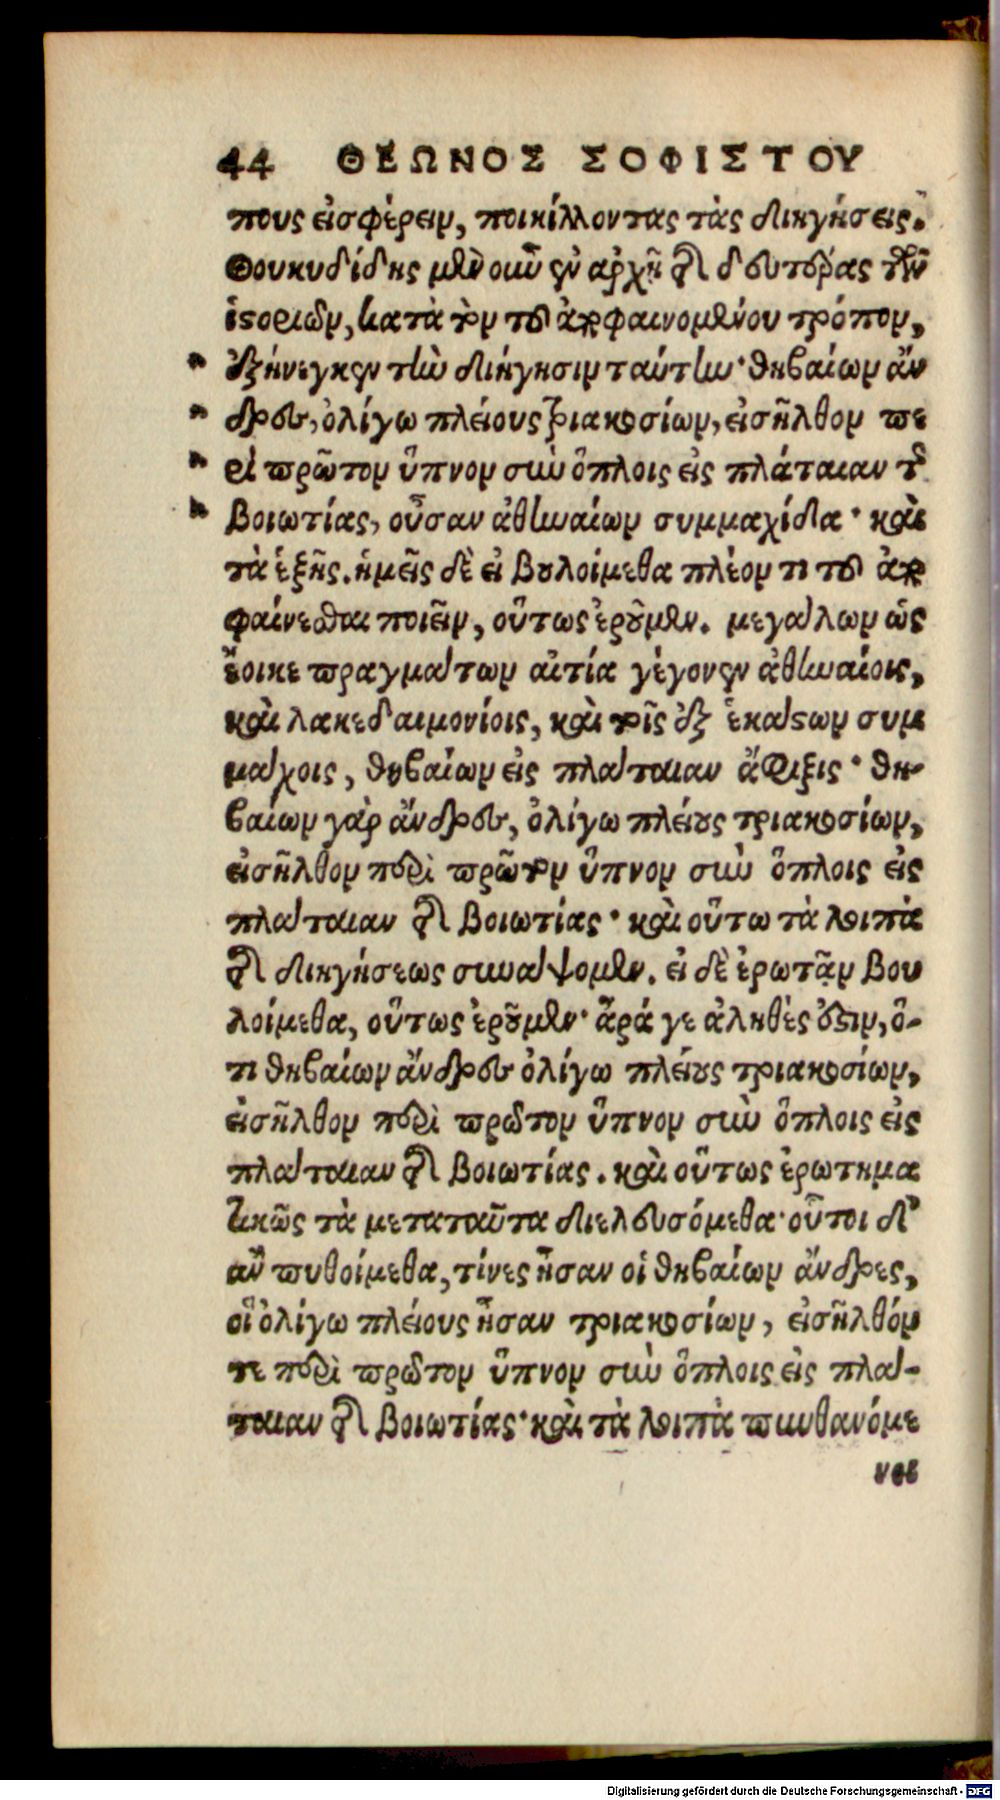 44 ΘΕΩΝΟΣ ΣΟΦΙΣΤΟΥ
πους εἰσφέρειν, ποικίλλοντας τὰς διηγήσεις.
Θουκυδίδης μὲν οὖν ἐν ἀρχῇ τῆς δευτέρας τῶν
ἱστοριῶν, κατὰ τὸν τοῦ ἀποφαινομένου τρόπον,
ἐξήνεγκεν τὴν διήγησιν ταύτην· θηβαίων ἄν
δρες, ὀλίγω πλείους τριακοσίων, εἰσῆλθον πε
ρὶ πρῶτον ὕπνον σὺν ὅπλοις εἰς πλάταιαν τῆς
βοιωτίας, οὖσαν ἀθηναίων συμμαχίδα· καὶ
τὰ ἑξῆς. ἡμεῖς δὲ εἰ βουλοίμεθα πλέον τι τοῦ ἀπο
φαίνεσθαι ποιεῖν, οὕτως ἐροῦμεν. μεγάλων ὡς
ἔοικε πραγμάτων αἰτία γέγονεν ἀθηναίοις,
καὶ λακεδαιμονίοις, καὶ τοῖς ἐξ ἑκάστων συμ
μάχοις, θηβαίων εἰς πλάταιαν ἄφιξις· θη-
βαίων γὰρ ἄνδρες, ὀλίγω πλείους τριακοσίων,
εἰσῆλθον περὶ πρῶτον ὕπνον σὺν ὅπλοις εἰς
πλάταιαν τῆς βοιωτίας· καὶ οὕτω τὰ λοιπὰ
τῆς διηγήσεως συνάψομεν. εἰ δὲ ἐρωτᾷν βου
λοίμεθα, οὕτως ἐροῦμεν· ἆρά γε ἀληθές ἐστιν, ὅ-
τι θηβαίων ἄνδρες ὀλίγω πλείους τριακοσίων,
εἰσῆλθον περὶ πρῶτον ὕπνον σὺν ὅπλοις εἰς
πλάταιαν τῆς βοιωτίας. καὶ οὕτως ἐρωτημα
τικῶς τὰ μεταταῦτα διελευσόμεθα· οὗτοι δ'
ἂν πυθοίμεθα, τίνες ἦσαν οἱ θηβαίων ἄνδρες,
οἳ ὀλίγω πλείους ἦσαν τριακοσίων, εἰσῆλθόν
τε περὶ πρῶτον ὕπνον σὺν ὅπλοις εἰς πλά-
ταιαν τῆς βοιωτίας· καὶ τὰ λοιπὰ πυνθανόμε
νοι
Digitalisierung gefördert durch die Deutsche Forschungsgemeinschaft - DFG